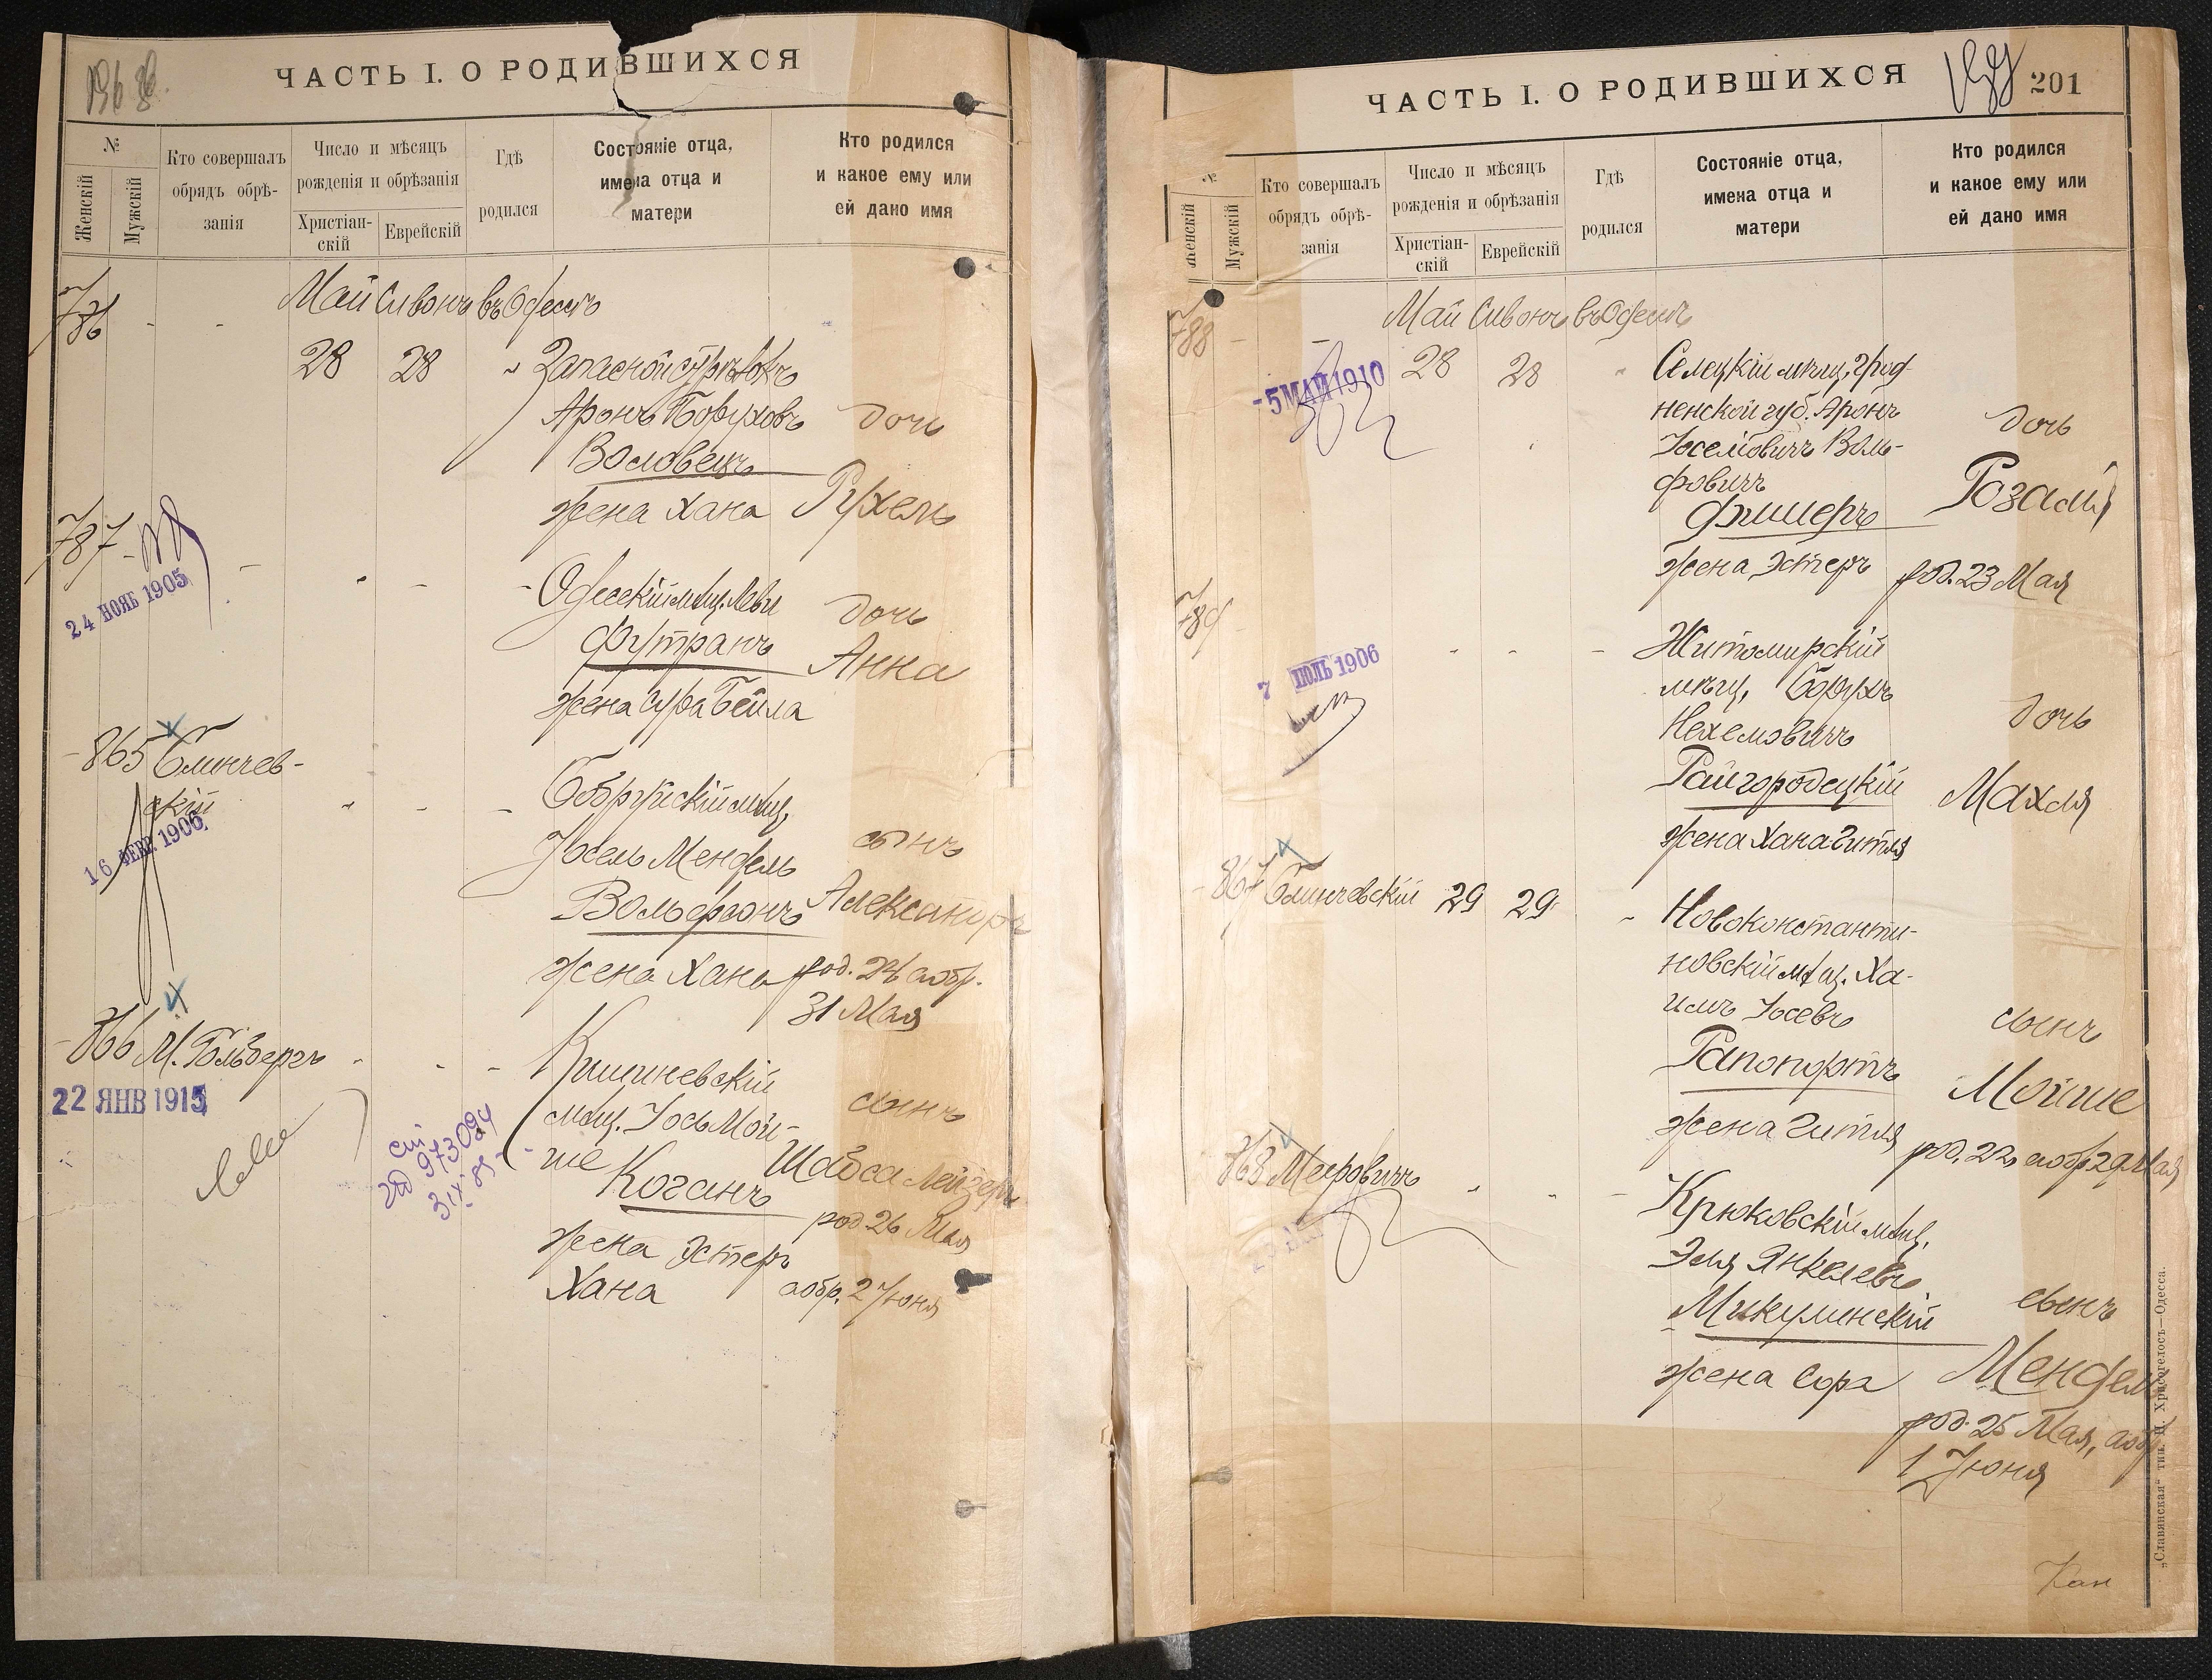 ЧАСТЬ I. О РОДИВШИХСЯ
№
Женскій
Мужскій
Кто совершалъ
обрядъ обрѣ-
занія
Число и мѣсяцъ
рожденія и обрѣзанія
Христіан-
скій
Еврейскій
Гдѣ
родился
Состояніе отца,
имена отца и
матери
Кто родился
и какое ему или
ей дано имя
Май Сивонъ въ Одессѣ
786 - -
28 28 " Запасной стрѣлокъ
Аронъ Боруховъ дочь
Воловецъ
жена Хана Рухель
787 -
24 НОЯБ 1905
- Одесскій мѣщ. Леви дочь
Футранъ Анна
жена Сура Бейла
- 865 Блинчев-
скій
16 ФЕВР. 1906
" - - Бобруйскій мѣщ.
Іосель Мендель сынъ
Вольфсонъ Александръ
жена Хана род. 24 а обр.
31 Мая
- 866 М. Гольдбергъ - - - Кишиневскій
22 ЯНВ 1915
973094
мѣщ. Іось Мой- сынъ
ше Шабса Лейзеръ
Коганъ
род 26 Мая
жена Эстеръ
Хана а обр. 2 Іюня
ЧАСТЬ I. О РОДИВШИХСЯ
201
№
Женскій
Мужскій
Кто совершалъ
обрядъ обрѣ-
занія
Число и мѣсяцъ
рожденія и обрѣзанія
Христіан-
скій
Еврейскій
Гдѣ
родился
Состояніе отца,
имена отца и
матери
Кто родился
и какое ему или
ей дано имя
Май Сивонъ въ Одессѣ
788 - -
-5 МАЙ 1910
28 28 " Селецкій мѣщ. Грод
ненской губ. Аронъ дочь
Іоселіовичъ Воль-
фовичъ Розалія
Фишеръ
жена Эстеръ род. 23 Мая
789 -
7 ІЮЛЬ 1906
- - - Житомирскій
мѣщ. Борухъ
Нехемовичъ дочь
Райгородецкій Махля
жена Хана Гитля
- 867 Блинчевскій 29 29 " Новоконстанти-
новскій мѣщ. Ха-
имъ Іосевъ сынъ
Рапопортъ Мойше
жена Гитля род. 22 а обр 29 Мая
868 Меировичъ " " - Крюковскій мѣщ.
Эля Янкелевъ
Микулинскій сынъ
жена Сора Мендель
род. 25 Мая, а обр
1 Іюня
„Славянская“ тип. Н. Хрисогелосъ—Одесса.